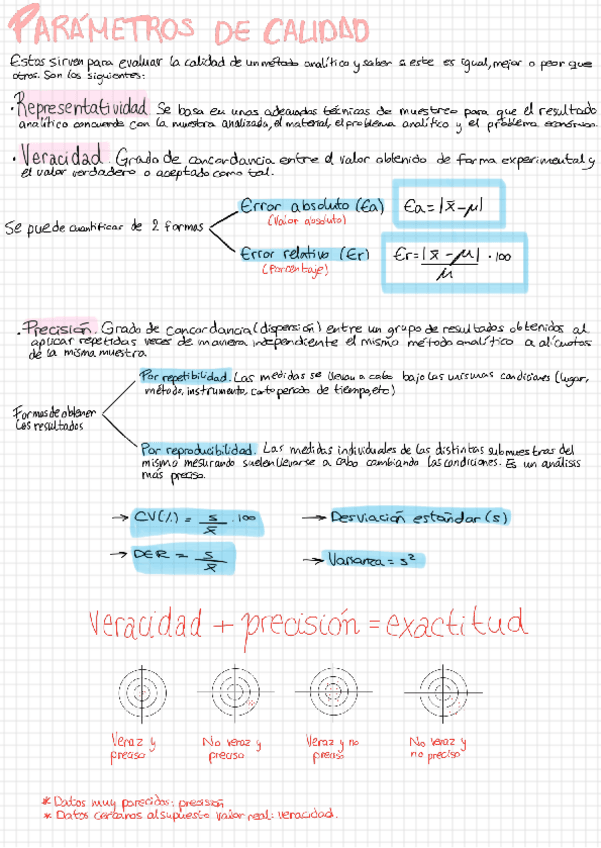 PARÁMETROS DE CALIDAD
Estos sirven para evaluar la calidad de un método analítico y saber si este es igual, mejor o peor que
otros. Son los siguientes:
· Representatividad. Se basa en unas adecuadas técnicas de muestreo para que el resultado
analítico concuerde con la muestra analizada, el material, el problema analítico y el problema económico.
· Veracidad. Grado de concordancia entre el valor obtenido de forma experimental y
el valor verdadero o aceptado como tal.
Se puede cuantificar de 2 formas
Error absoluto (Ea)
(Valor absoluto)
Ea = |x̄ - μ|
Error relativo (Er)
(Porcentaje)
Er = |x̄ - μ| / μ · 100
· Precisión. Grado de concordancia (dispersión) entre un grupo de resultados obtenidos al
aplicar repetidas veces de manera independiente el mismo método analítico a alícuotas
de la misma muestra.
Formas de obtener
los resultados
Por repetibilidad. Las medidas se llevan a cabo bajo las mismas condiciones (lugar,
método, instrumento, corto periodo de tiempo, etc)
Por reproducibilidad. Las medidas individuales de las distintas submuestras del
mismo mesurando suelen llevarse a cabo cambiando las condiciones. Es un análisis
más preciso.
→ CV(%) = s / x̄ · 100
→ Desviación estándar (s)
→ DER = s / x̄
→ Varianza = s²
veracidad + precisión = exactitud
Veraz y
preciso
No veraz y
preciso
Veraz y no
preciso
No veraz y
no preciso
* Datos muy parecidos: precisión
* Datos cercanos al supuesto valor real: veracidad.